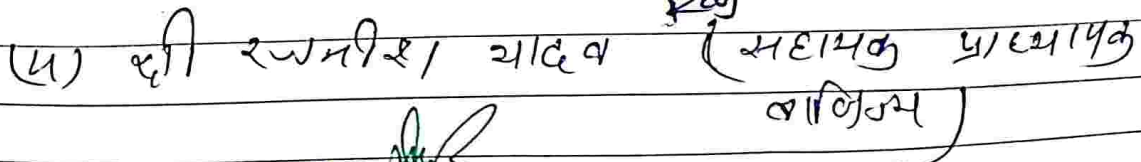 (५) श्री रजनीश यादव (सहायक प्राध्यापक
वाणिज्य)